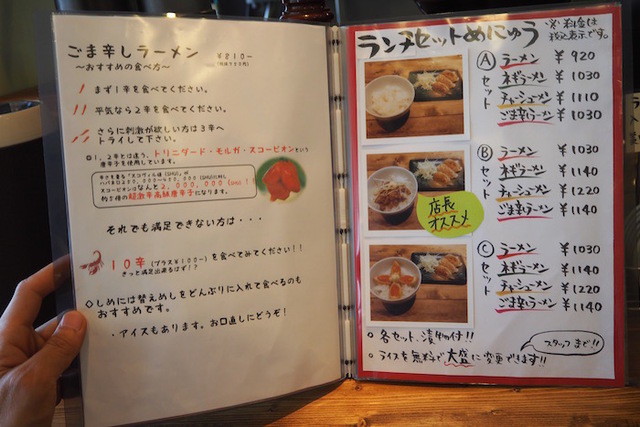 ごま辛しラーメン ¥810-
～おすすめの食べ方～
まず1辛を食べてください。
平気なら2辛を食べてください。
さらに刺激が欲しい方は3辛へ
トライして下さい。
1、2辛とは違う、トリニダード・モルガ・スコーピオンという
唐辛子を使用しています。
スコーピオンはなんと2,000,000
約5倍の超激辛高級唐辛子になります。
それでも満足できない方は・・・
10辛(プラス¥100-)を食べてみてください！！
きっと満足出来るはず！？
◇しめには替えめしをどんぶりに入れて食べるのも
おすすめです。
・アイスもあります。お口直しにどうぞ！
ランチセットめにゅう
※料金は
税込表示です。
Ⓐセット
ラーメン ¥920
ネギラーメン ¥1030
チャーシューメン ¥1110
ごま辛ラーメン ¥1030
Ⓑセット
ラーメン ¥1030
ネギラーメン ¥1140
チャーシューメン ¥1220
ごま辛ラーメン ¥1140
店長
オススメ
Ⓒセット
ラーメン ¥1030
ネギラーメン ¥1140
チャーシューメン ¥1220
ごま辛ラーメン ¥1140
各セット、漬物付!!
ライスを無料で大盛に変更できます!!
スタッフまで!!